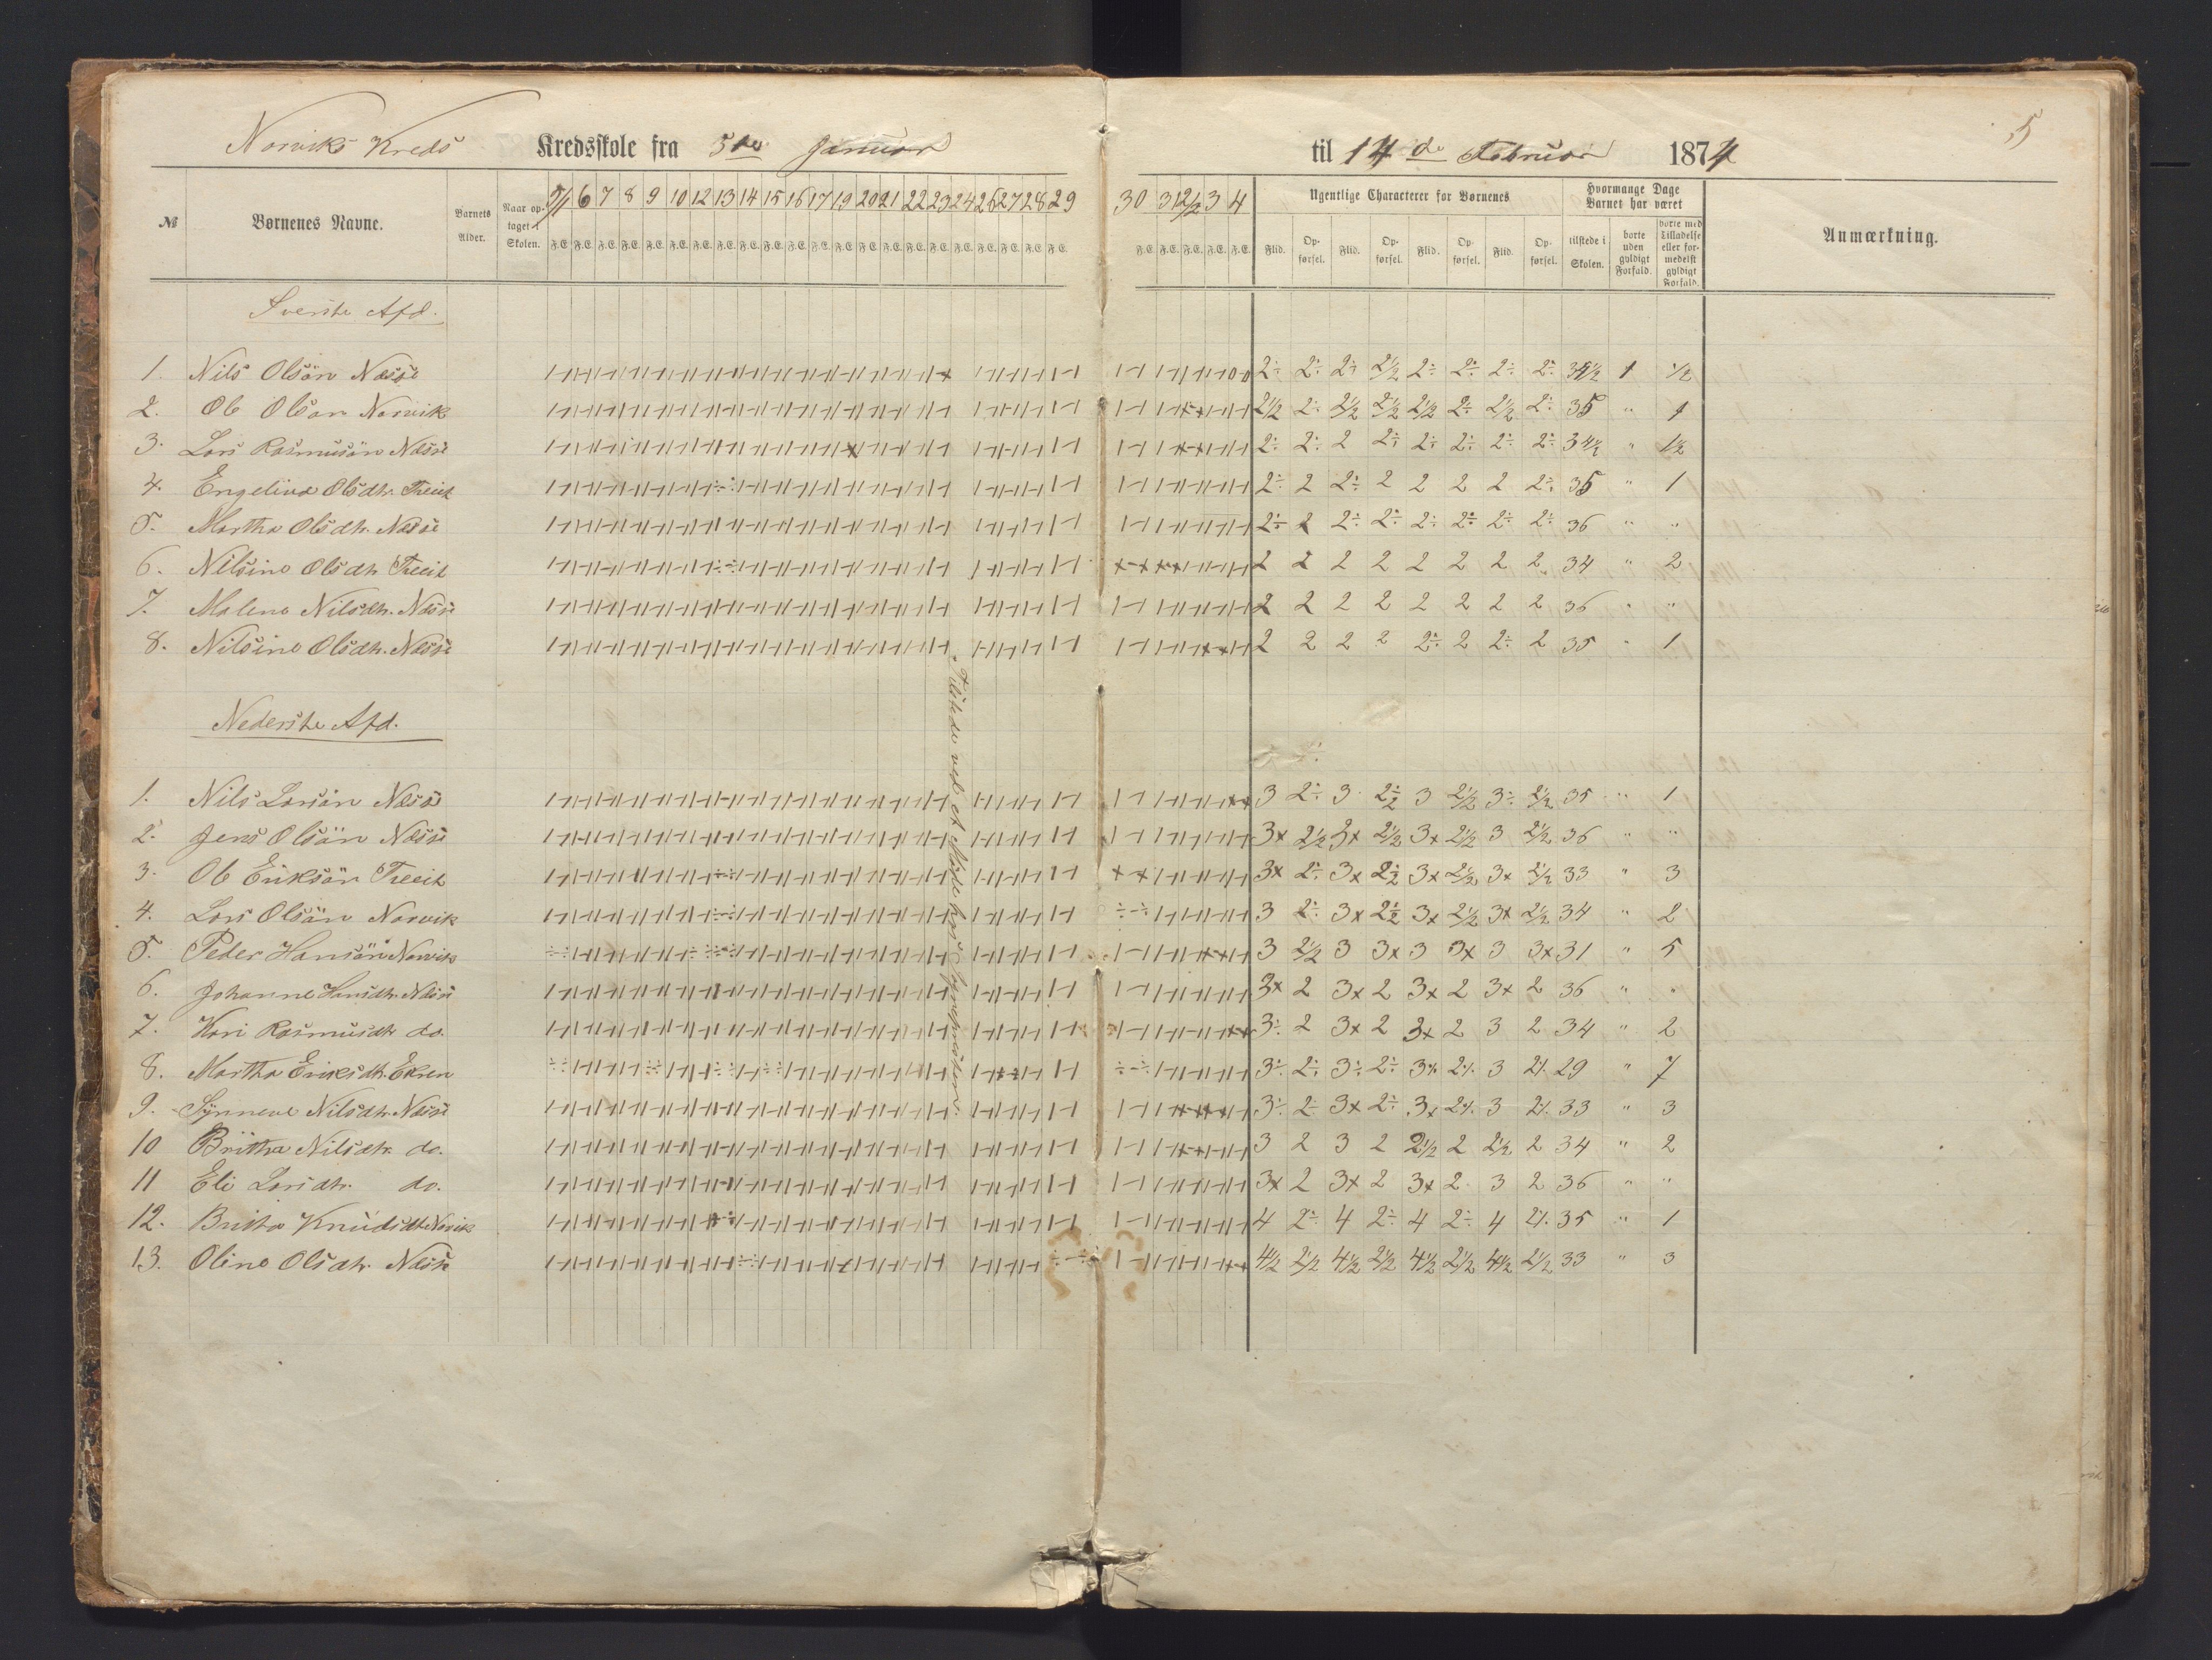 5
Norviks Kreds Kredsskole fra 5te Januar til 14de Februar 1874
№ Børnenes Navne. Barnets Alder. Naar optaget i Skolen. 5/1 6 7 8 9 10 12 13 14 15 16 17 19 20 21 22 23 24 26 27 28 29 30 31 2/2 3 4 Ugentlige Characterer for Børnenes Hvormange Dage Barnet har været Anmærkning.
F. E. F. E. F. E. F. E. F. E. F. E. F. E. F. E. F. E. F. E. F. E. F. E. F. E. F. E. F. E. F. E. F. E. F. E. F. E. F. E. F. E. F. E. F. E. F. E. F. E. F. E. F. E. Flid. Opførsel. Flid. Opførsel. Flid. Opførsel. Flid. Opførsel. tilstede i Skolen. borte uden gyldigt Forfald. borte med Tilladelse eller formedelst gyldigt Forfald.
Øverste Afd.
1. Nils Olsön Næsse 2÷ 2÷ 2÷ 2½ 2÷ 2÷ 2÷ 2÷ 34½ 1 ½
2. Ole Olsön Norvik 2½ 2÷ 2½ 2½ 2½ 2÷ 2½ 2÷ 35 " 1
3. Lars Rasmusön Næsse 2÷ 2÷ 2 2÷ 2÷ 2÷ 2÷ 2÷ 34½ " 1½
4. Engeline Olsdtr. Treeit 2÷ 2 2÷ 2 2 2 2 2÷ 35 " 1
5. Martha Olsdtr. Næsse 2÷ 2 2÷ 2÷ 2÷ 2÷ 2÷ 2÷ 36 " "
6. Nilsine Olsdtr Treeit 2 2 2 2 2 2 2 2 34 " 2
7. Malene Nilsdtr. Næsse 2 2 2 2 2 2 2 2 36 " "
8. Nilsine Olsdtr. Næsse 2 2 2 2 2÷ 2 2÷ 2 35 " 1
Tilstede ved et Møde hos Sognepræsten.
Nederste Afd.
1. Nils Larsön Næsse 3 2÷ 3 2½ 3 2½ 3÷ 2½ 35 " 1
2. Jens Olsön Næsse 3x 2½ 3x 2½ 3x 2½ 3 2½ 36 " "
3. Ole Eriksön Treeit 3x 2÷ 3x 2½ 3x 2½ 3x 2½ 33 " 3
4. Lars Olsön Norvik 3 2÷ 3x 2½ 3x 2½ 3x 2½ 34 " 2
5. Peder Hansön Norvik 3 2½ 3 3x 3 3x 3 3x 31 " 5
6. Johanne Hansdtr. Næsse 3x 2 3x 2 3x 2 3x 2 36 " "
7. Kari Rasmusdtr do. 3÷ 2 3x 2 3x 2 3 2 34 " 2
8. Martha Eriksdtr. Ekren 3÷ 2÷ 3÷ 2÷ 3÷ 2÷ 3 2÷ 29 " 7
9. Synneve Nilsdtr. Næsse 3÷ 2÷ 3x 2÷ 3x 2÷ 3 2÷ 33 " 3
10 Britha Nilsdtr. do. 3 2 3 2 2½ 2 2½ 2 34 " 2
11 Eli Larsdtr. do. 3x 2 3x 2 3x 2 3 2 36 " "
12. Britha Knudsdtr Norvik 4 2÷ 4 2÷ 4 2÷ 4 2÷ 35 " 1
13. Oline Olsdtr. Næsse 4½ 2½ 4½ 2½ 4½ 2½ 4½ 2½ 33 " 3